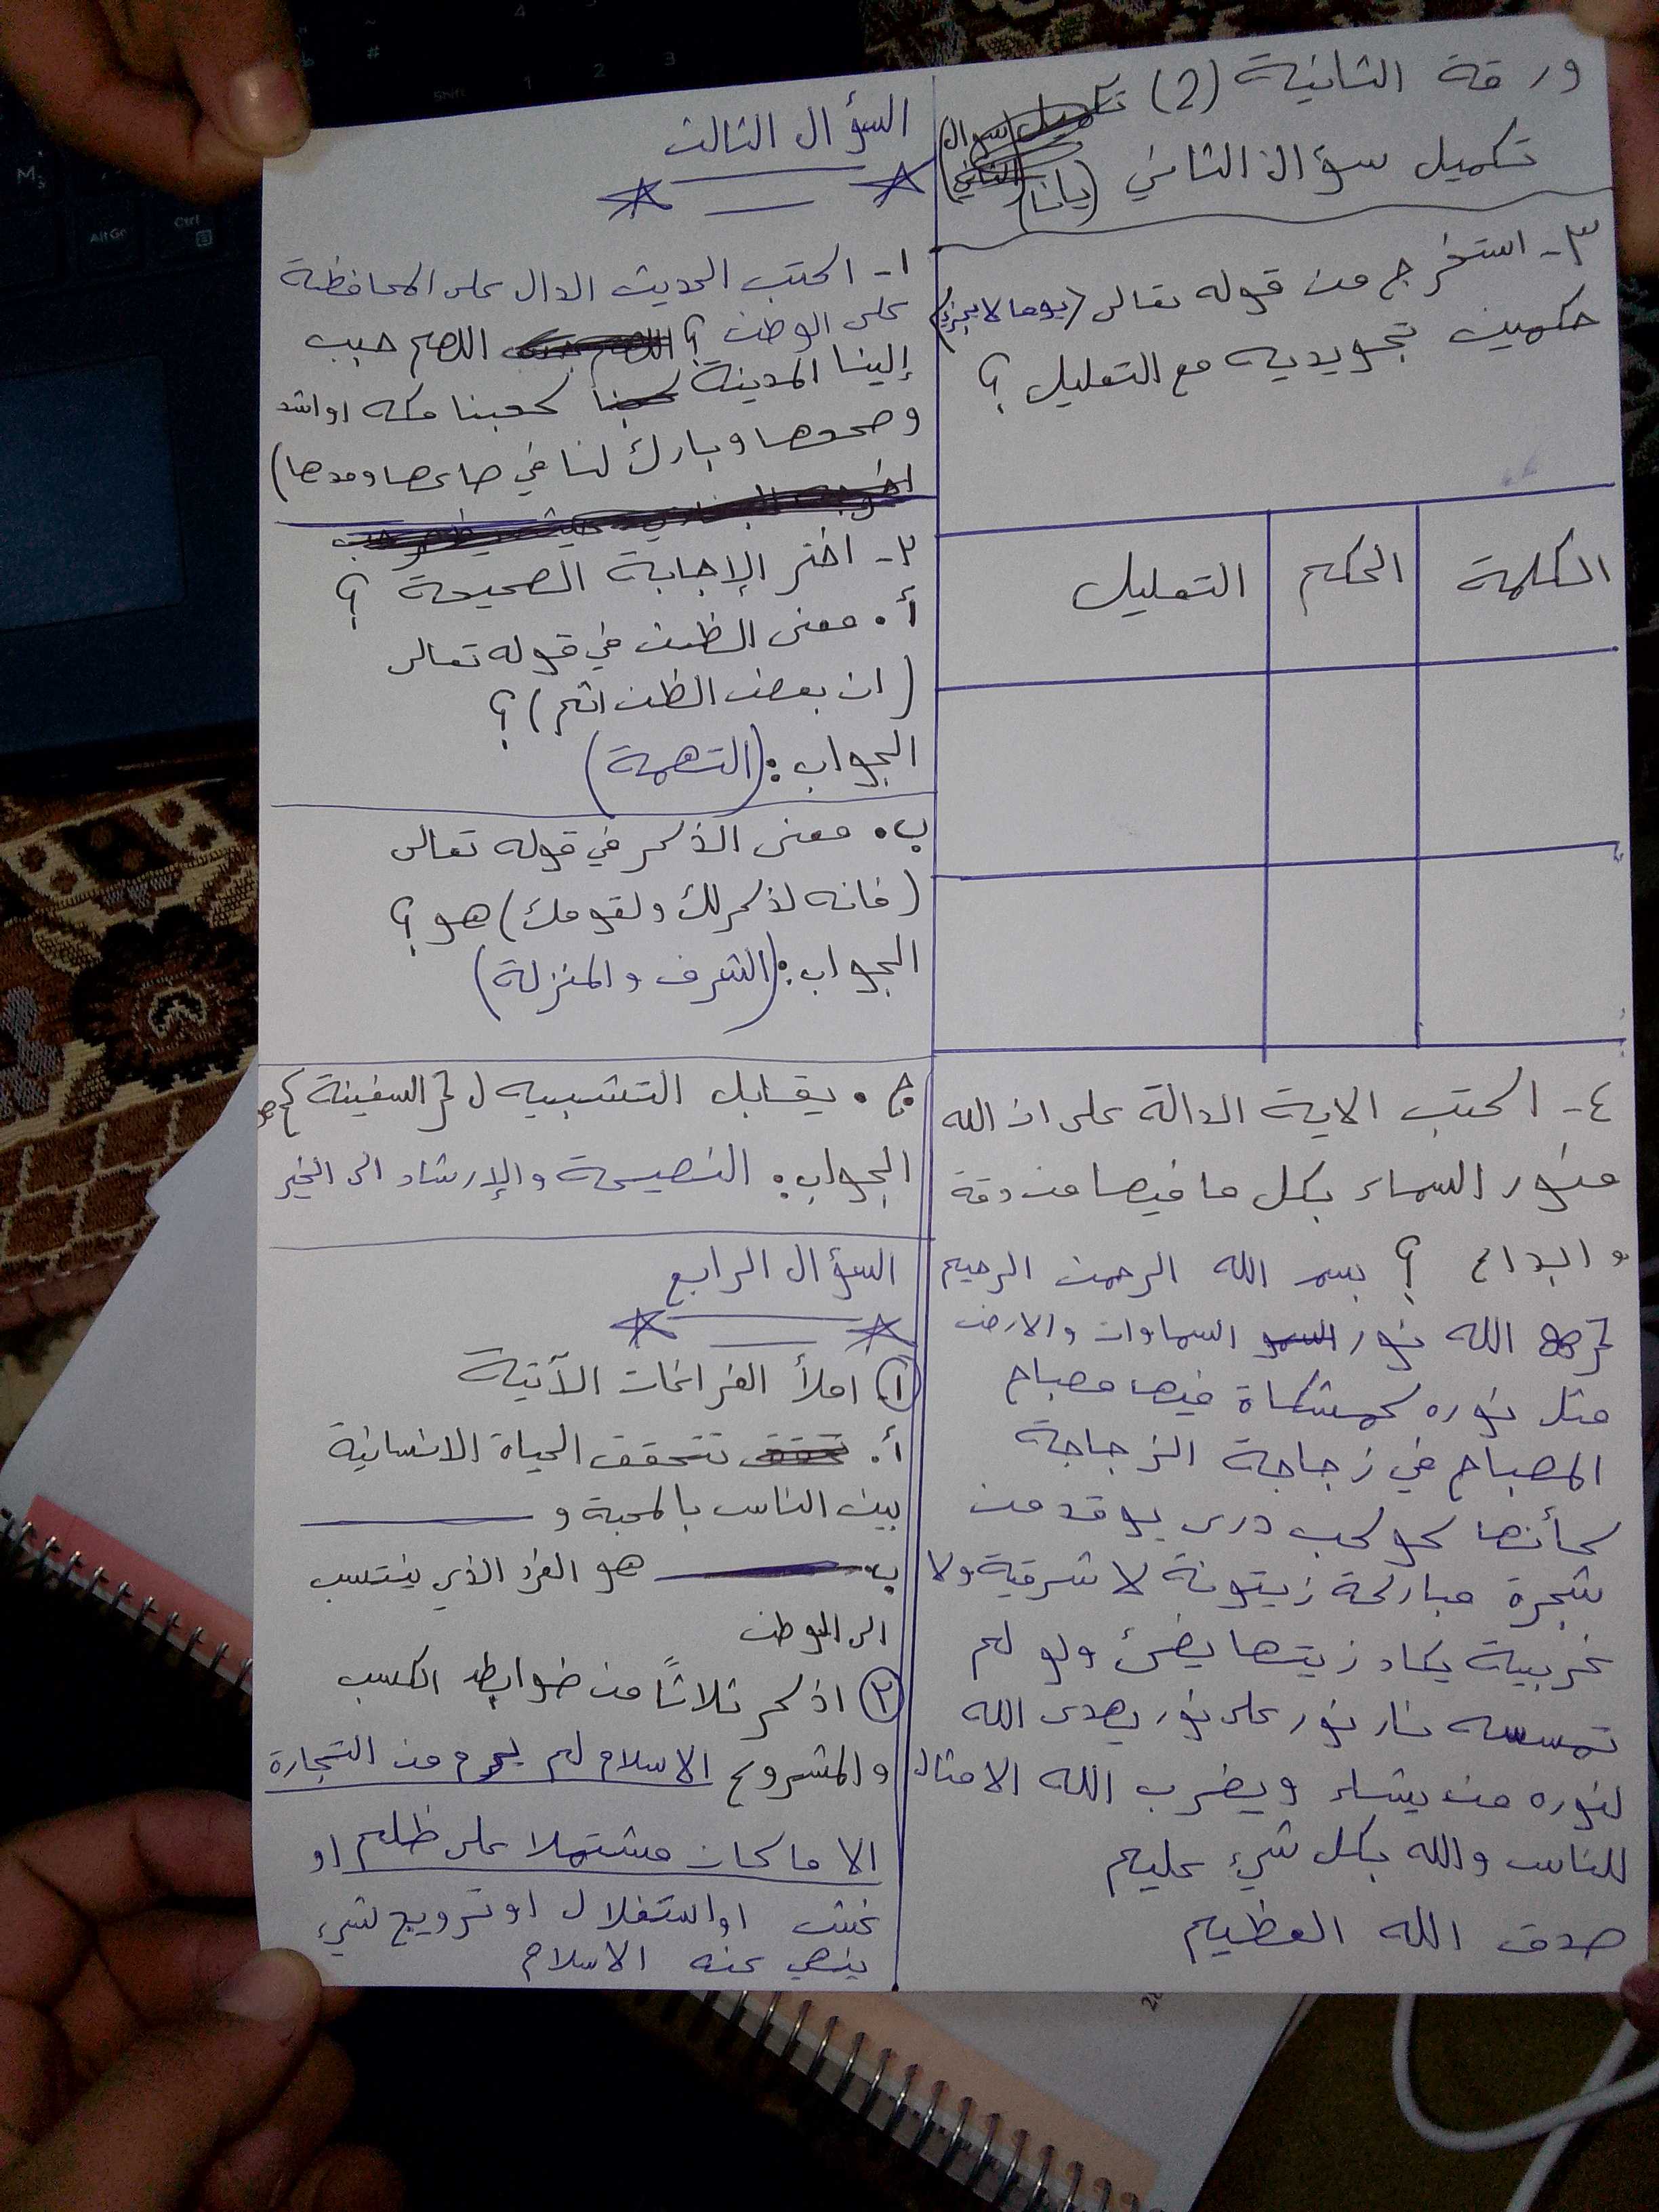 ورقة الثانية (2)
تكميل سؤال الثاني (يانا)
٣- استخرج من قوله تعالى (يوما لا يجزي)
حكمين تجويديه مع التعليل ؟
الكلمة الحكم التعليل
٤- اكتب الاية الدالة على ان الله
منور السماء بكل ما فيها من دقة
و ابداع ؟ بسم الله الرحمن الرحيم
الله نور السماوات والارض
مثل نوره كمشكاة فيها مصباح
المصباح في زجاجة الزجاجة
كأنها كوكب درى يوقد من
شجرة مباركة زيتونة لا شرقية ولا
غربية يكاد زيتها يضئ ولو لم
تمسسه نار نور على نور يهدى الله
لنوره من يشاء ويضرب الله الامثال
للناس والله بكل شيء عليم
صدق الله العظيم
السؤال الثالث
١- اكتب الحديث الدال على المحافظة
على الوطن ؟ اللهم حبب
إلينا المدينة كحبنا مكه او اشد
وصححها وبارك لنا في صاعها ومدها)
٢- اختر الإجابة الصحيحة ؟
أ. معنى الظن في قوله تعالى
(ان بعض الظن اثم) ؟
الجواب : (التهمة)
ب. معنى الذكر في قوله تعالى
(فانه لذكر لك ولقومك) هو ؟
الجواب : (الشرف والمنزلة)
ج. يقابل التشبيه ل {السفينة}
الجواب : النصيحة والإرشاد الى الخير
السؤال الرابع
١ املأ الفراغات الآتية
أ. تتحقق الحياة الانسانية
بين الناس بالمحبة و
ب. هو الفرد الذي ينتسب
الى الوطن
٢ اذكر ثلاثاً من ضوابط الكسب
والمشروع الاسلام لم يحرم من التجارة
الا ما كان مشتملا على ظلم او
غش او استغلال او ترويج لشيء
ينهي عنه الاسلام